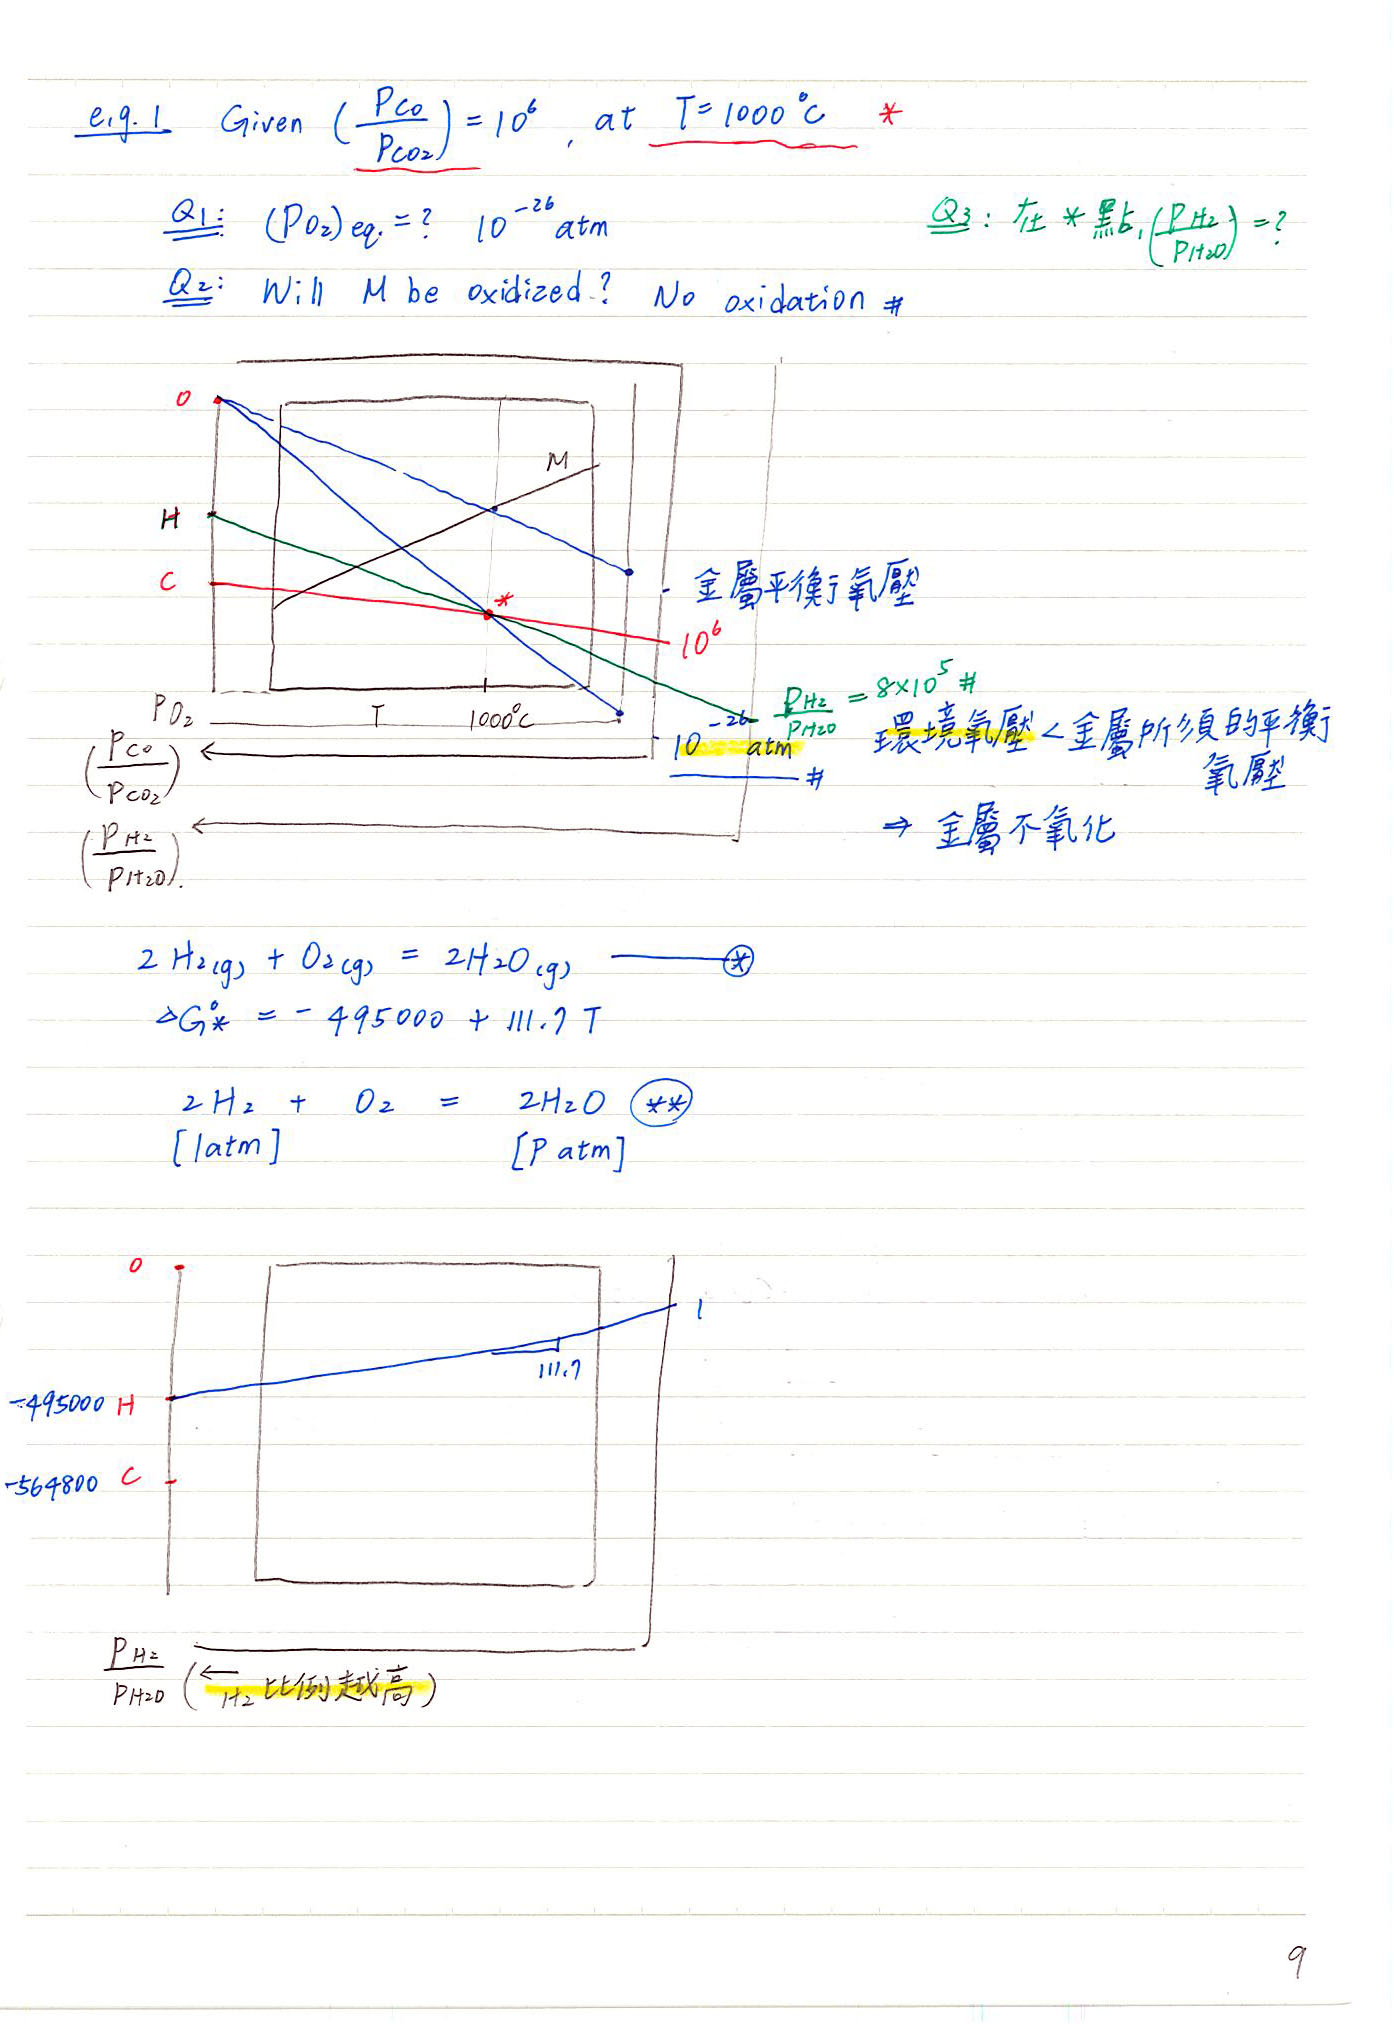 e.g.1 Given (PCO/PCO2) = 10⁶, at T=1000°C *
Q1: (PO2)eq. = ? 10⁻²⁶ atm
Q3: 在 * 點, (PH2/PH2O) = ?
Q2: Will M be oxidized? No oxidation #
O
M
H
C
*
金屬平衡氧壓
10⁶
PO2 T 1000°C
10⁻²⁶ atm #
PH2/PH2O = 8×10⁵ #
環境氧壓 < 金屬所須的平衡
氧壓
(PCO/PCO2)
⇒ 金屬不氧化
(PH2/PH2O).
2H2(g) + O2(g) = 2H2O(g) —— *
△G°* = -495000 + 111.7 T
2H2 + O2 = 2H2O **
[1atm] [P atm]
O
1
111.7
-495000 H
-564800 C
PH2/PH2O (← H2 比例越高)
9